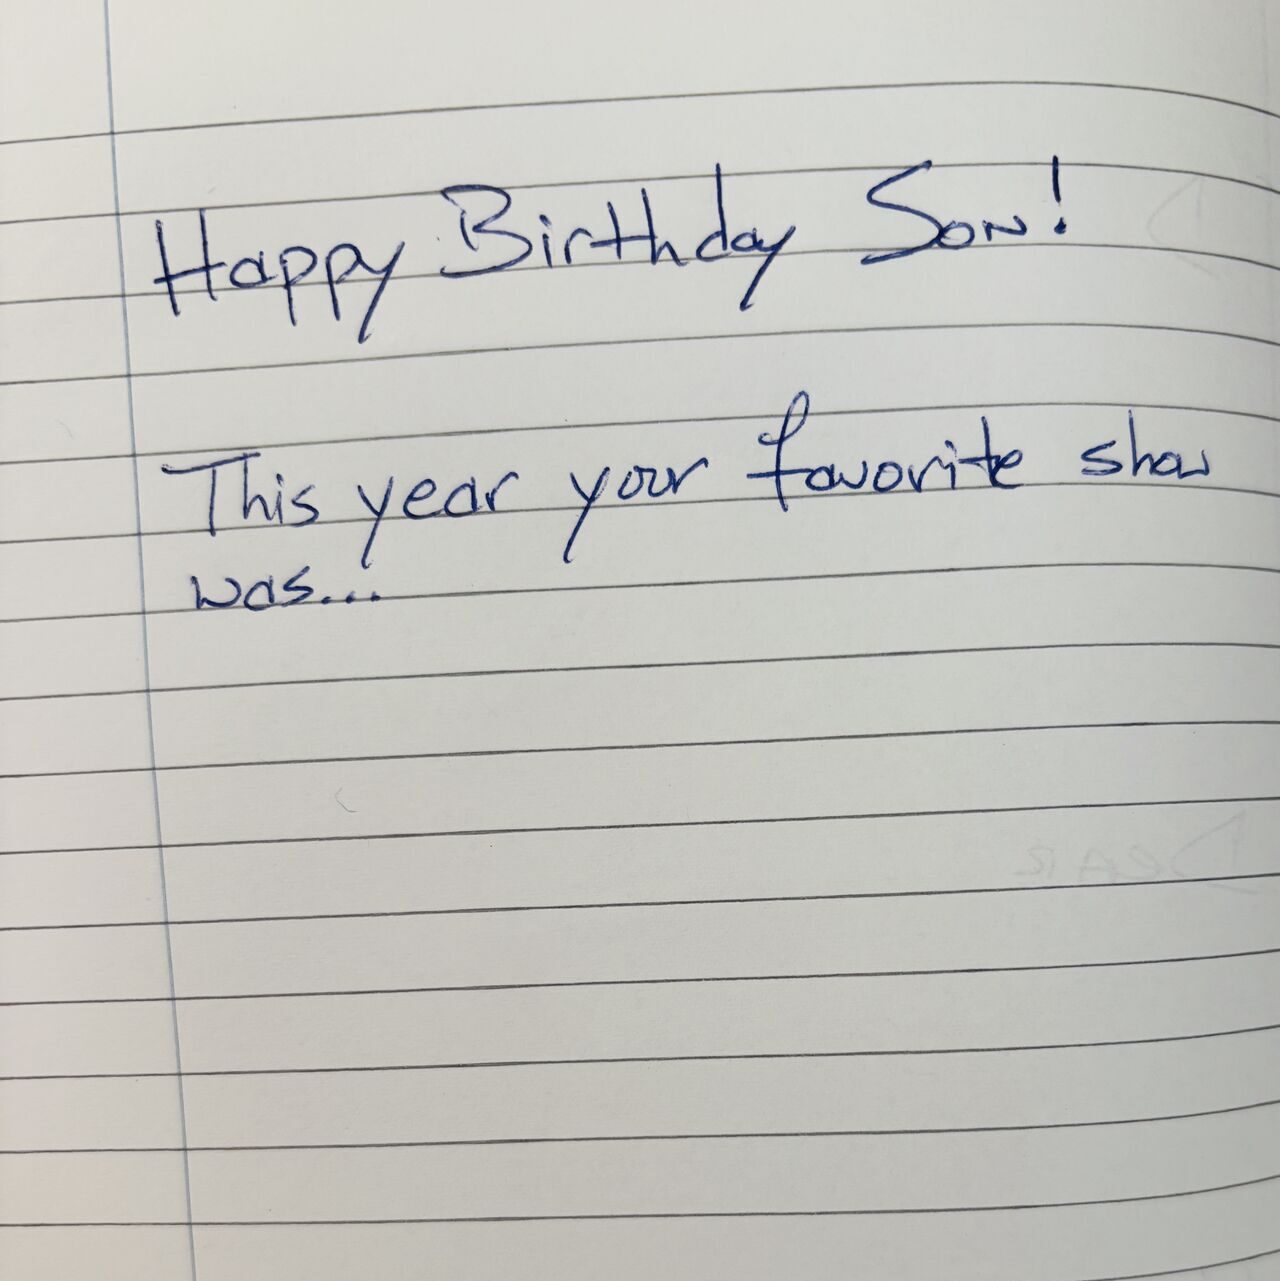 Happy Birthday Son!
This year your favorite show
was...